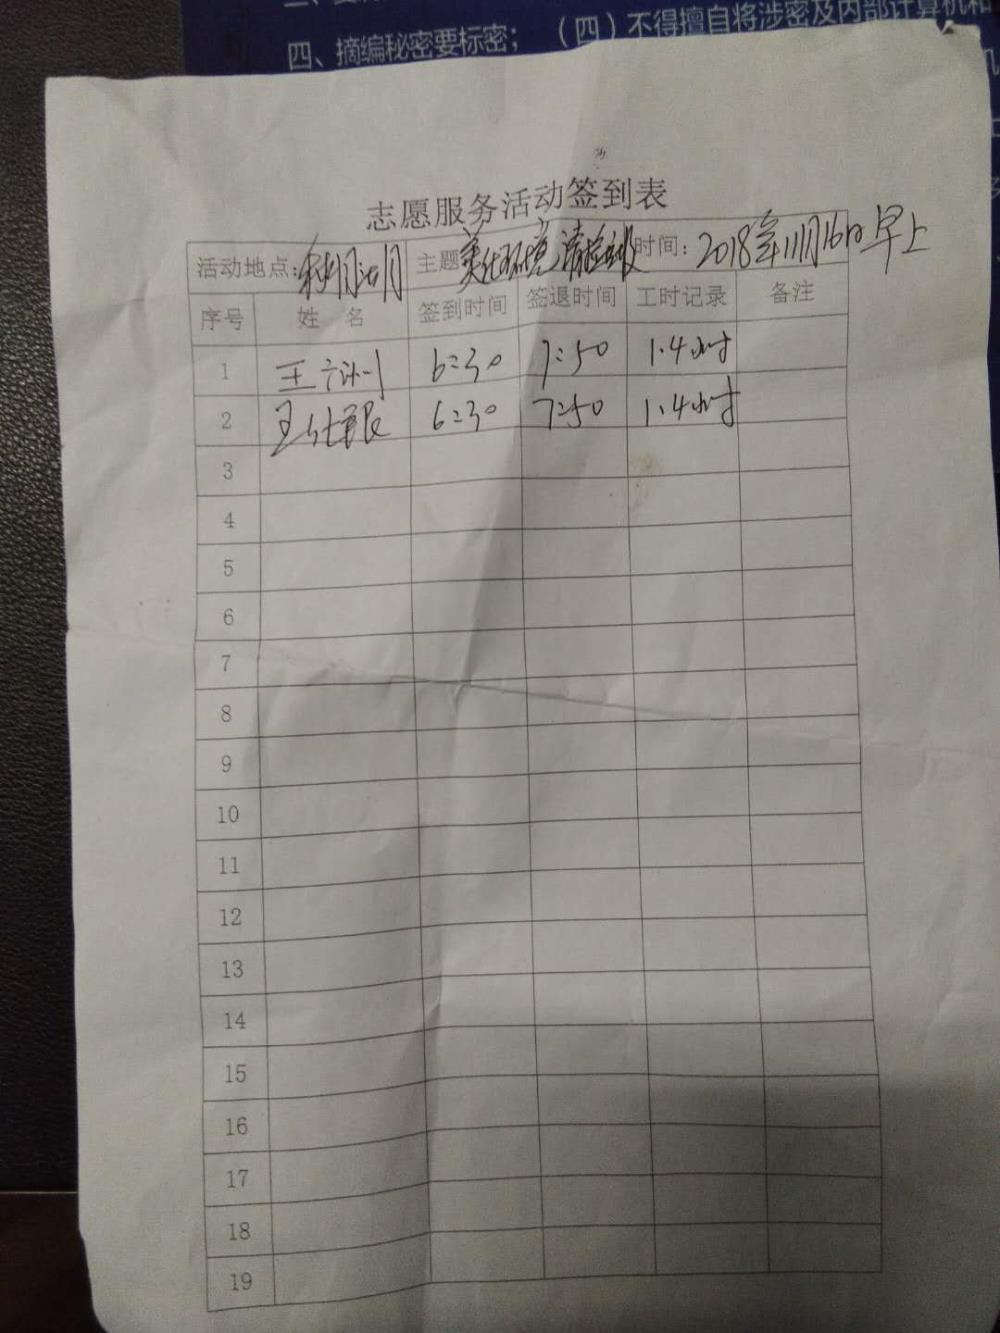 四、摘编秘密要标密；（四）不得擅自将涉密及内部计算机和
志愿服务活动签到表
活动地点： 主题 美化环境 清垃圾 时间：2018年11月16日早上
序号 姓 名 签到时间 签退时间 工时记录 备注
1 王 6:30 7:50 1.4小时
2 王仕银 6:30 7:50 1.4小时
3
4
5
6
7
8
9
10
11
12
13
14
15
16
17
18
19